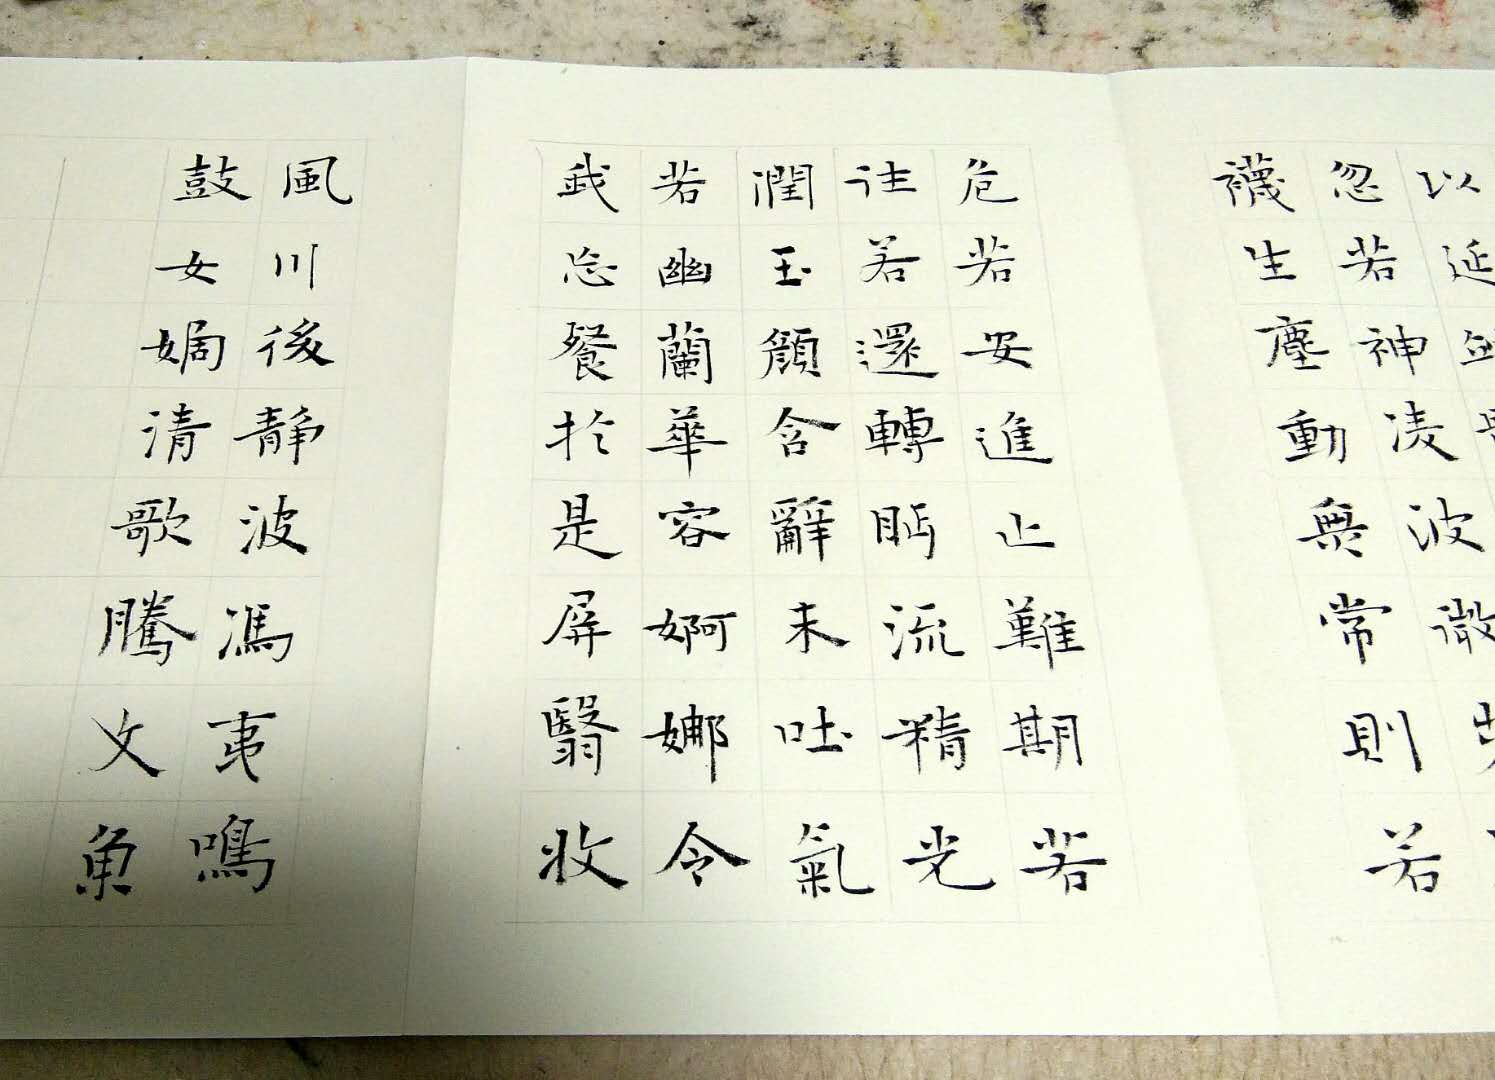 以延
忽若神凌波微
襪生塵動無常則若
危若安進止難期若
往若還轉眄流精光
潤玉顏含辭未吐氣
若幽蘭華容婀娜令
我忘餐於是屏翳收
風川後静波馮夷鳴
鼓女媧清歌騰文魚